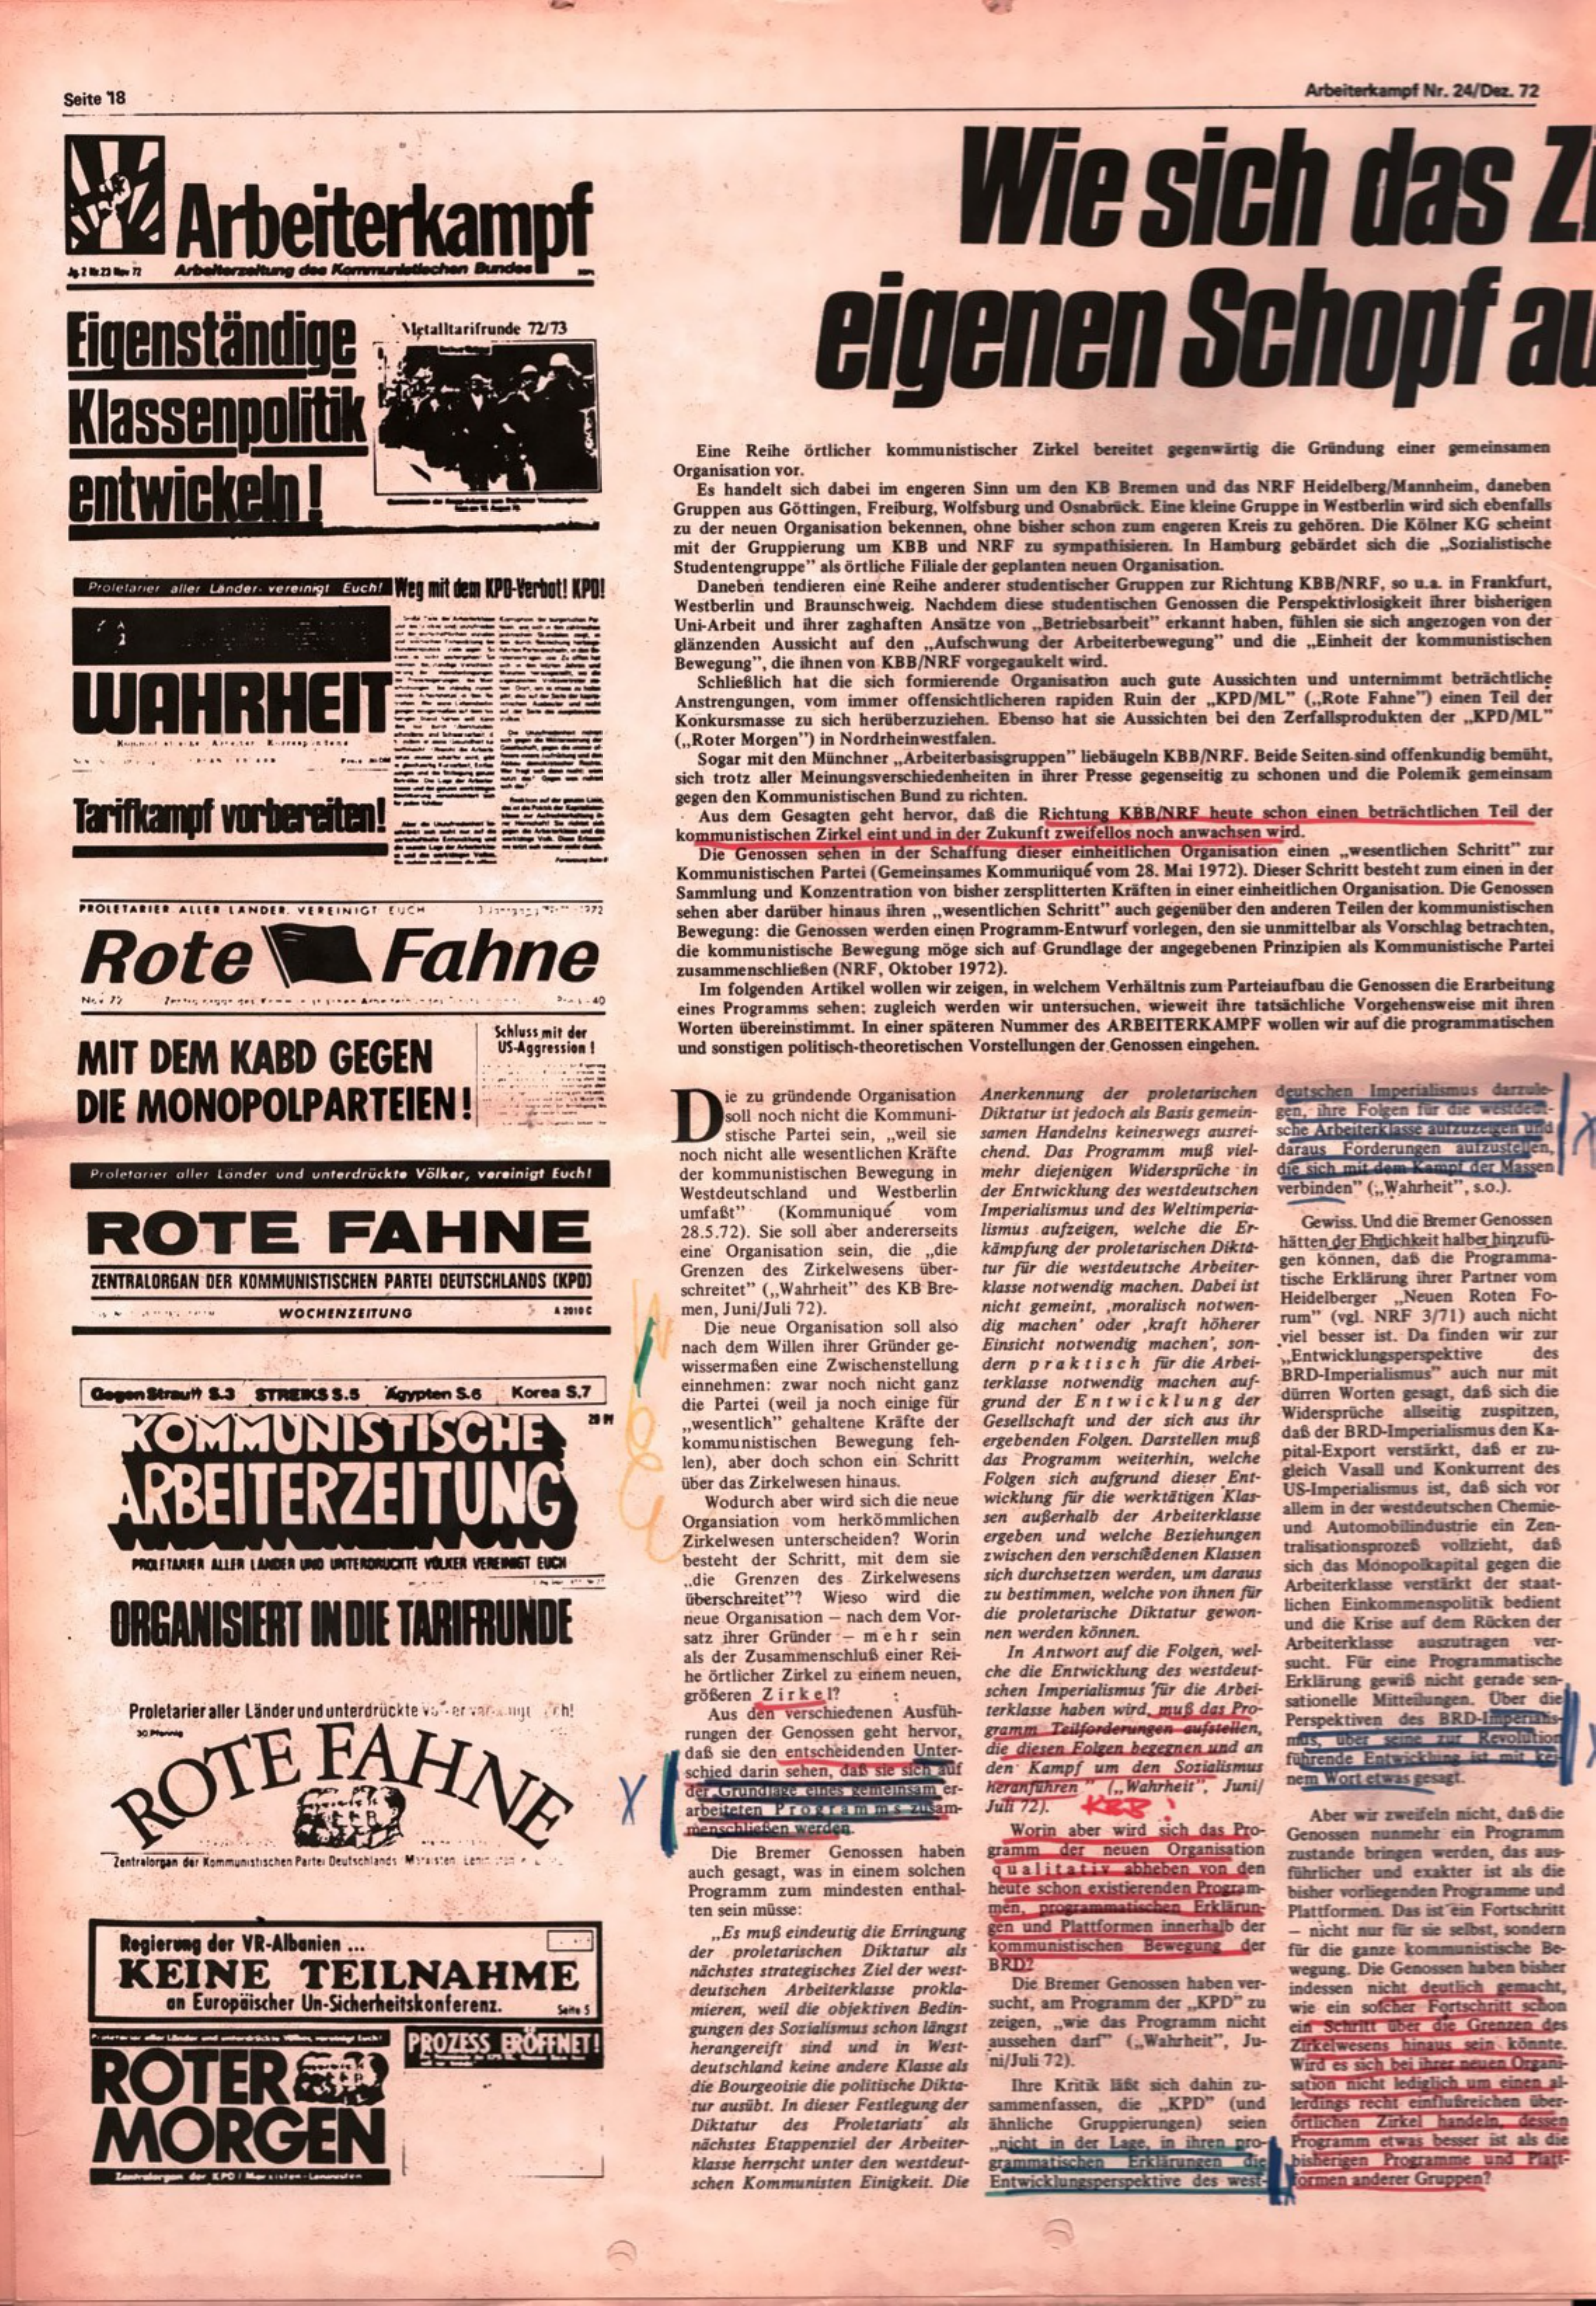 Seite 18
Arbeiterkampf Nr. 24/Dez. 72
Arbeiterkampf
Jg. 2 Nr. 23 Nov 72 Arbeiterzeitung des Kommunistischen Bundes
Eigenständige
Klassenpolitik
entwickeln!
Metalltarifrunde 72/73
Proletarier aller Länder, vereinigt Euch!
Weg mit dem KPD-Verbot! KPD!
WAHRHEIT
Tarifkampf vorbereiten!
PROLETARIER ALLER LÄNDER, VEREINIGT EUCH
Rote Fahne
Nov 72
MIT DEM KABD GEGEN
DIE MONOPOLPARTEIEN!
Schluss mit der
US-Aggression!
Proletarier aller Länder und unterdrückte Völker, vereinigt Euch!
ROTE FAHNE
ZENTRALORGAN DER KOMMUNISTISCHEN PARTEI DEUTSCHLANDS (KPD)
WOCHENZEITUNG
A 2010 C
Gegen Strauß S.3 STREIKS S.5 Ägypten S.6 Korea S.7
KOMMUNISTISCHE
ARBEITERZEITUNG
PROLETARIER ALLER LÄNDER UND UNTERDRÜCKTE VÖLKER VEREINIGT EUCH
ORGANISIERT IN DIE TARIFRUNDE
Proletarier aller Länder und unterdrückte
ROTE FAHNE
Zentralorgan der Kommunistischen Partei Deutschlands
Regierung der VR-Albanien ...
KEINE TEILNAHME
an Europäischer Un-Sicherheitskonferenz.
Seite 5
PROZESS ERÖFFNET!
ROTER
MORGEN
Zentralorgan der KPD / Marxisten-Leninisten
Wie sich das Zi
eigenen Schopf au
Eine Reihe örtlicher kommunistischer Zirkel bereitet gegenwärtig die Gründung einer gemeinsamen
Organisation vor.
Es handelt sich dabei im engeren Sinn um den KB Bremen und das NRF Heidelberg/Mannheim, daneben
Gruppen aus Göttingen, Freiburg, Wolfsburg und Osnabrück. Eine kleine Gruppe in Westberlin wird sich ebenfalls
zu der neuen Organisation bekennen, ohne bisher schon zum engeren Kreis zu gehören. Die Kölner KG scheint
mit der Gruppierung um KBB und NRF zu sympathisieren. In Hamburg gebärdet sich die „Sozialistische
Studentengruppe" als örtliche Filiale der geplanten neuen Organisation.
Daneben tendieren eine Reihe anderer studentischer Gruppen zur Richtung KBB/NRF, so u.a. in Frankfurt,
Westberlin und Braunschweig. Nachdem diese studentischen Genossen die Perspektivlosigkeit ihrer bisherigen
Uni-Arbeit und ihrer zaghaften Ansätze von „Betriebsarbeit" erkannt haben, fühlen sie sich angezogen von der
glänzenden Aussicht auf den „Aufschwung der Arbeiterbewegung" und die „Einheit der kommunistischen
Bewegung", die ihnen von KBB/NRF vorgegaukelt wird.
Schließlich hat die sich formierende Organisation auch gute Aussichten und unternimmt beträchtliche
Anstrengungen, vom immer offensichtlicheren rapiden Ruin der „KPD/ML" („Rote Fahne") einen Teil der
Konkursmasse zu sich herüberzuziehen. Ebenso hat sie Aussichten bei den Zerfallsprodukten der „KPD/ML"
(„Roter Morgen") in Nordrheinwestfalen.
Sogar mit den Münchner „Arbeiterbasisgruppen" liebäugeln KBB/NRF. Beide Seiten sind offenkundig bemüht,
sich trotz aller Meinungsverschiedenheiten in ihrer Presse gegenseitig zu schonen und die Polemik gemeinsam
gegen den Kommunistischen Bund zu richten.
Aus dem Gesagten geht hervor, daß die Richtung KBB/NRF heute schon einen beträchtlichen Teil der
kommunistischen Zirkel eint und in der Zukunft zweifellos noch anwachsen wird.
Die Genossen sehen in der Schaffung dieser einheitlichen Organisation einen „wesentlichen Schritt" zur
Kommunistischen Partei (Gemeinsames Kommuniqué vom 28. Mai 1972). Dieser Schritt besteht zum einen in der
Sammlung und Konzentration von bisher zersplitterten Kräften in einer einheitlichen Organisation. Die Genossen
sehen aber darüber hinaus ihren „wesentlichen Schritt" auch gegenüber den anderen Teilen der kommunistischen
Bewegung: die Genossen werden einen Programm-Entwurf vorlegen, den sie unmittelbar als Vorschlag betrachten,
die kommunistische Bewegung möge sich auf Grundlage der angegebenen Prinzipien als Kommunistische Partei
zusammenschließen (NRF, Oktober 1972).
Im folgenden Artikel wollen wir zeigen, in welchem Verhältnis zum Parteiaufbau die Genossen die Erarbeitung
eines Programms sehen; zugleich werden wir untersuchen, wieweit ihre tatsächliche Vorgehensweise mit ihren
Worten übereinstimmt. In einer späteren Nummer des ARBEITERKAMPF wollen wir auf die programmatischen
und sonstigen politisch-theoretischen Vorstellungen der Genossen eingehen.
Die zu gründende Organisation
soll noch nicht die Kommuni-
stische Partei sein, „weil sie
noch nicht alle wesentlichen Kräfte
der kommunistischen Bewegung in
Westdeutschland und Westberlin
umfaßt" (Kommuniqué vom
28.5.72). Sie soll aber andererseits
eine Organisation sein, die „die
Grenzen des Zirkelwesens über-
schreitet" („Wahrheit" des KB Bre-
men, Juni/Juli 72).
Die neue Organisation soll also
nach dem Willen ihrer Gründer ge-
wissermaßen eine Zwischenstellung
einnehmen: zwar noch nicht ganz
die Partei (weil ja noch einige für
„wesentlich" gehaltene Kräfte der
kommunistischen Bewegung feh-
len), aber doch schon ein Schritt
über das Zirkelwesen hinaus.
Wodurch aber wird sich die neue
Organsiation vom herkömmlichen
Zirkelwesen unterscheiden? Worin
besteht der Schritt, mit dem sie
„die Grenzen des Zirkelwesens
überschreitet"? Wieso wird die
neue Organisation – nach dem Vor-
satz ihrer Gründer – mehr sein
als der Zusammenschluß einer Rei-
he örtlicher Zirkel zu einem neuen,
größeren Zirkel?
Aus den verschiedenen Ausfüh-
rungen der Genossen geht hervor,
daß sie den entscheidenden Unter-
schied darin sehen, daß sie sich auf
der Grundlage eines gemeinsam er-
arbeiteten Programms zusam-
menschließen werden.
Die Bremer Genossen haben
auch gesagt, was in einem solchen
Programm zum mindesten enthal-
ten sein müsse:
„Es muß eindeutig die Erringung
der proletarischen Diktatur als
nächstes strategisches Ziel der west-
deutschen Arbeiterklasse prokla-
mieren, weil die objektiven Bedin-
gungen des Sozialismus schon längst
herangereift sind und in West-
deutschland keine andere Klasse als
die Bourgeoisie die politische Dikta-
tur ausübt. In dieser Festlegung der
Diktatur des Proletariats als
nächstes Etappenziel der Arbeiter-
klasse herrscht unter den westdeut-
schen Kommunisten Einigkeit. Die
Anerkennung der proletarischen
Diktatur ist jedoch als Basis gemein-
samen Handelns keineswegs ausrei-
chend. Das Programm muß viel-
mehr diejenigen Widersprüche in
der Entwicklung des westdeutschen
Imperialismus und des Weltimperia-
lismus aufzeigen, welche die Er-
kämpfung der proletarischen Dikta-
tur für die westdeutsche Arbeiter-
klasse notwendig machen. Dabei ist
nicht gemeint, ‚moralisch notwen-
dig machen' oder ‚kraft höherer
Einsicht notwendig machen', son-
dern praktisch für die Arbei-
terklasse notwendig machen auf-
grund der Entwicklung der
Gesellschaft und der sich aus ihr
ergebenden Folgen. Darstellen muß
das Programm weiterhin, welche
Folgen sich aufgrund dieser Ent-
wicklung für die werktätigen Klas-
sen außerhalb der Arbeiterklasse
ergeben und welche Beziehungen
zwischen den verschiedenen Klassen
sich durchsetzen werden, um daraus
zu bestimmen, welche von ihnen für
die proletarische Diktatur gewon-
nen werden können.
In Antwort auf die Folgen, wel-
che die Entwicklung des westdeut-
schen Imperialismus für die Arbei-
terklasse haben wird, muß das Pro-
gramm Teilforderungen aufstellen,
die diesen Folgen begegnen und an
den Kampf um den Sozialismus
heranführen" („Wahrheit", Juni/
Juli 72).
KBB!
Worin aber wird sich das Pro-
gramm der neuen Organisation
qualitativ abheben von den
heute schon existierenden Program-
men, programmatischen Erklärun-
gen und Plattformen innerhalb der
kommunistischen Bewegung der
BRD?
Die Bremer Genossen haben ver-
sucht, am Programm der „KPD" zu
zeigen, „wie das Programm nicht
aussehen darf" („Wahrheit", Ju-
ni/Juli 72).
Ihre Kritik läßt sich dahin zu-
sammenfassen, die „KPD" (und
ähnliche Gruppierungen) seien
„nicht in der Lage, in ihren pro-
grammatischen Erklärungen die
Entwicklungsperspektive des west-
deutschen Imperialismus darzule-
gen, ihre Folgen für die westdeut-
sche Arbeiterklasse aufzuzeigen und
daraus Forderungen aufzustellen,
die sich mit dem Kampf der Massen
verbinden" („Wahrheit", s.o.).
Gewiss. Und die Bremer Genossen
hätten der Ehrlichkeit halber hinzufü-
gen können, daß die Programma-
tische Erklärung ihrer Partner vom
Heidelberger „Neuen Roten Fo-
rum" (vgl. NRF 3/71) auch nicht
viel besser ist. Da finden wir zur
„Entwicklungsperspektive des
BRD-Imperialismus" auch nur mit
dürren Worten gesagt, daß sich die
Widersprüche allseitig zuspitzen,
daß der BRD-Imperialismus den Ka-
pital-Export verstärkt, daß er zu-
gleich Vasall und Konkurrent des
US-Imperialismus ist, daß sich vor
allem in der westdeutschen Chemie-
und Automobilindustrie ein Zen-
tralisationsprozeß vollzieht, daß
sich das Monopolkapital gegen die
Arbeiterklasse verstärkt der staat-
lichen Einkommenspolitik bedient
und die Krise auf dem Rücken der
Arbeiterklasse auszutragen ver-
sucht. Für eine Programmatische
Erklärung gewiß nicht gerade sen-
sationelle Mitteilungen. Über die
Perspektiven des BRD-Imperialis-
mus, über seine zur Revolution
führende Entwicklung ist mit kei-
nem Wort etwas gesagt.
Aber wir zweifeln nicht, daß die
Genossen nunmehr ein Programm
zustande bringen werden, das aus-
führlicher und exakter ist als die
bisher vorliegenden Programme und
Plattformen. Das ist ein Fortschritt
– nicht nur für sie selbst, sondern
für die ganze kommunistische Be-
wegung. Die Genossen haben bisher
indessen nicht deutlich gemacht,
wie ein solcher Fortschritt schon
ein Schritt über die Grenzen des
Zirkelwesens hinaus sein könnte.
Wird es sich bei ihrer neuen Organi-
sation nicht lediglich um einen al-
lerdings recht einflußreichen über-
örtlichen Zirkel handeln, dessen
Programm etwas besser ist als die
bisherigen Programme und Platt-
formen anderer Gruppen?